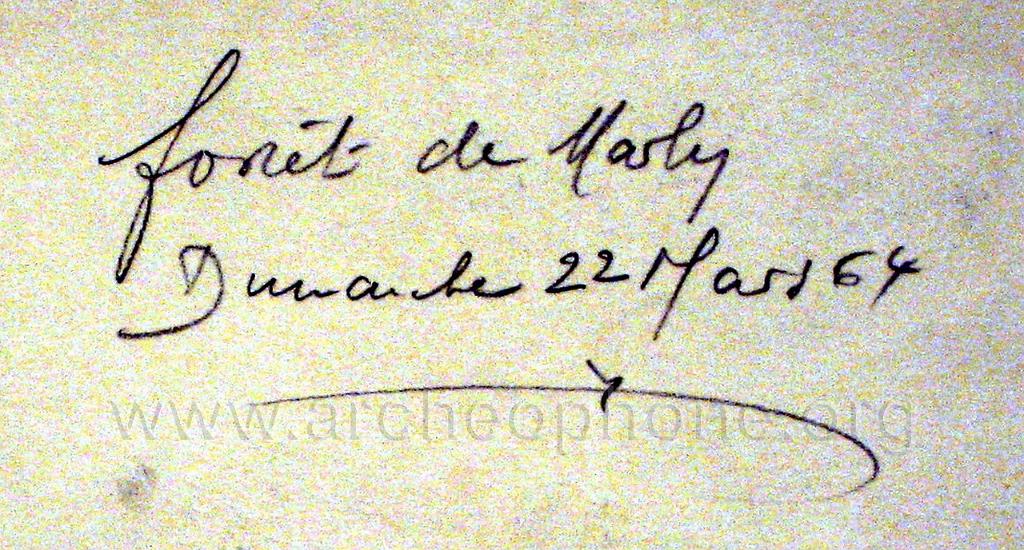 forêt de Marly
Dimanche 22 Mars 64
www.archeophone.org